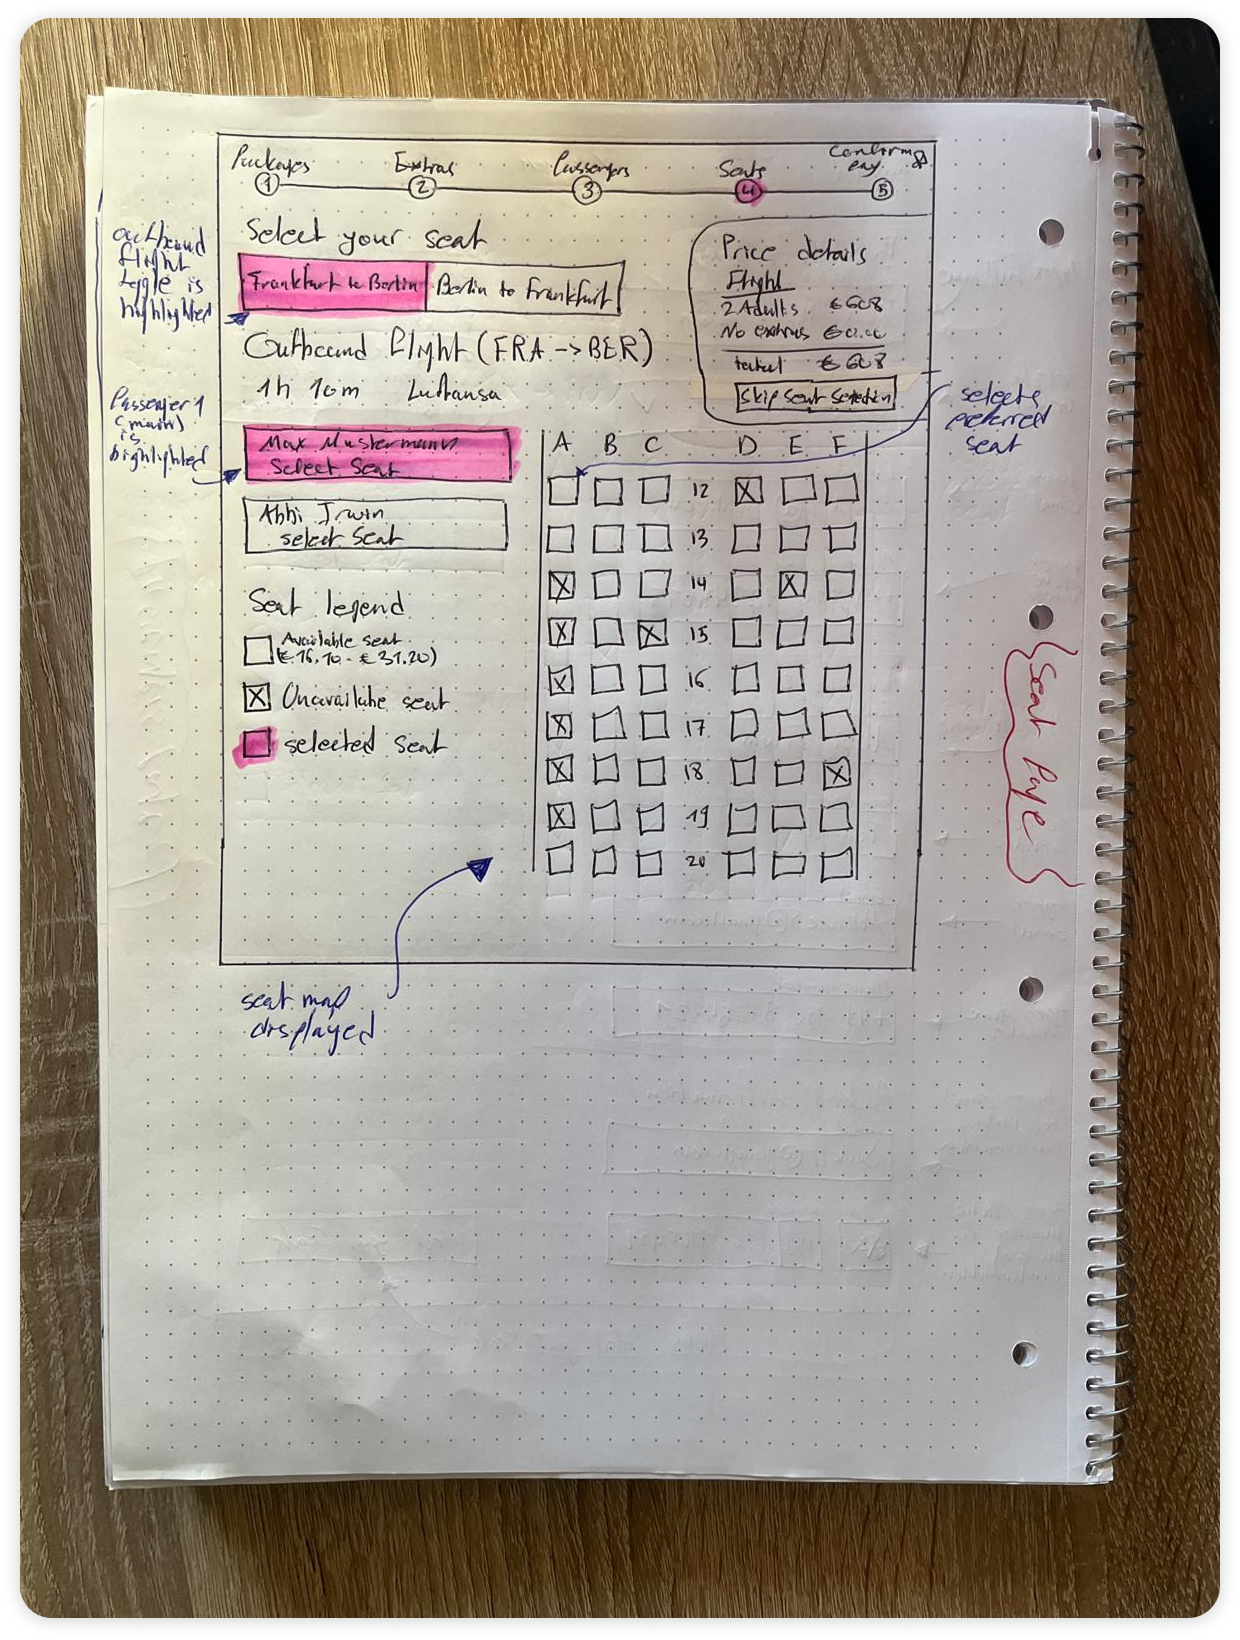 Packages
Extras
Passengers
Seats
Confirm &
pay
1
2
3
4
5
Select your seat
Frankfurt to Berlin
Berlin to Frankfurt
Outbound flight (FRA -> BER)
1h 10m Lufthansa
Price details
Flight
2 Adults € 608
No extras € 0.00
total € 608
Skip Seat Selection
outbound
flight
toggle is
highlighted
Passenger 1
(main)
is
highlighted
selects
preferred
seat
Max Mustermann
Select Seat
Abhi Irwin
select Seat
Seat legend
Available seat
(€16.10 - €31.20)
Unavailable seat
selected seat
A B C D E F
12
13
14
15
16
17
18
19
20
seat map
displayed
Seat Page